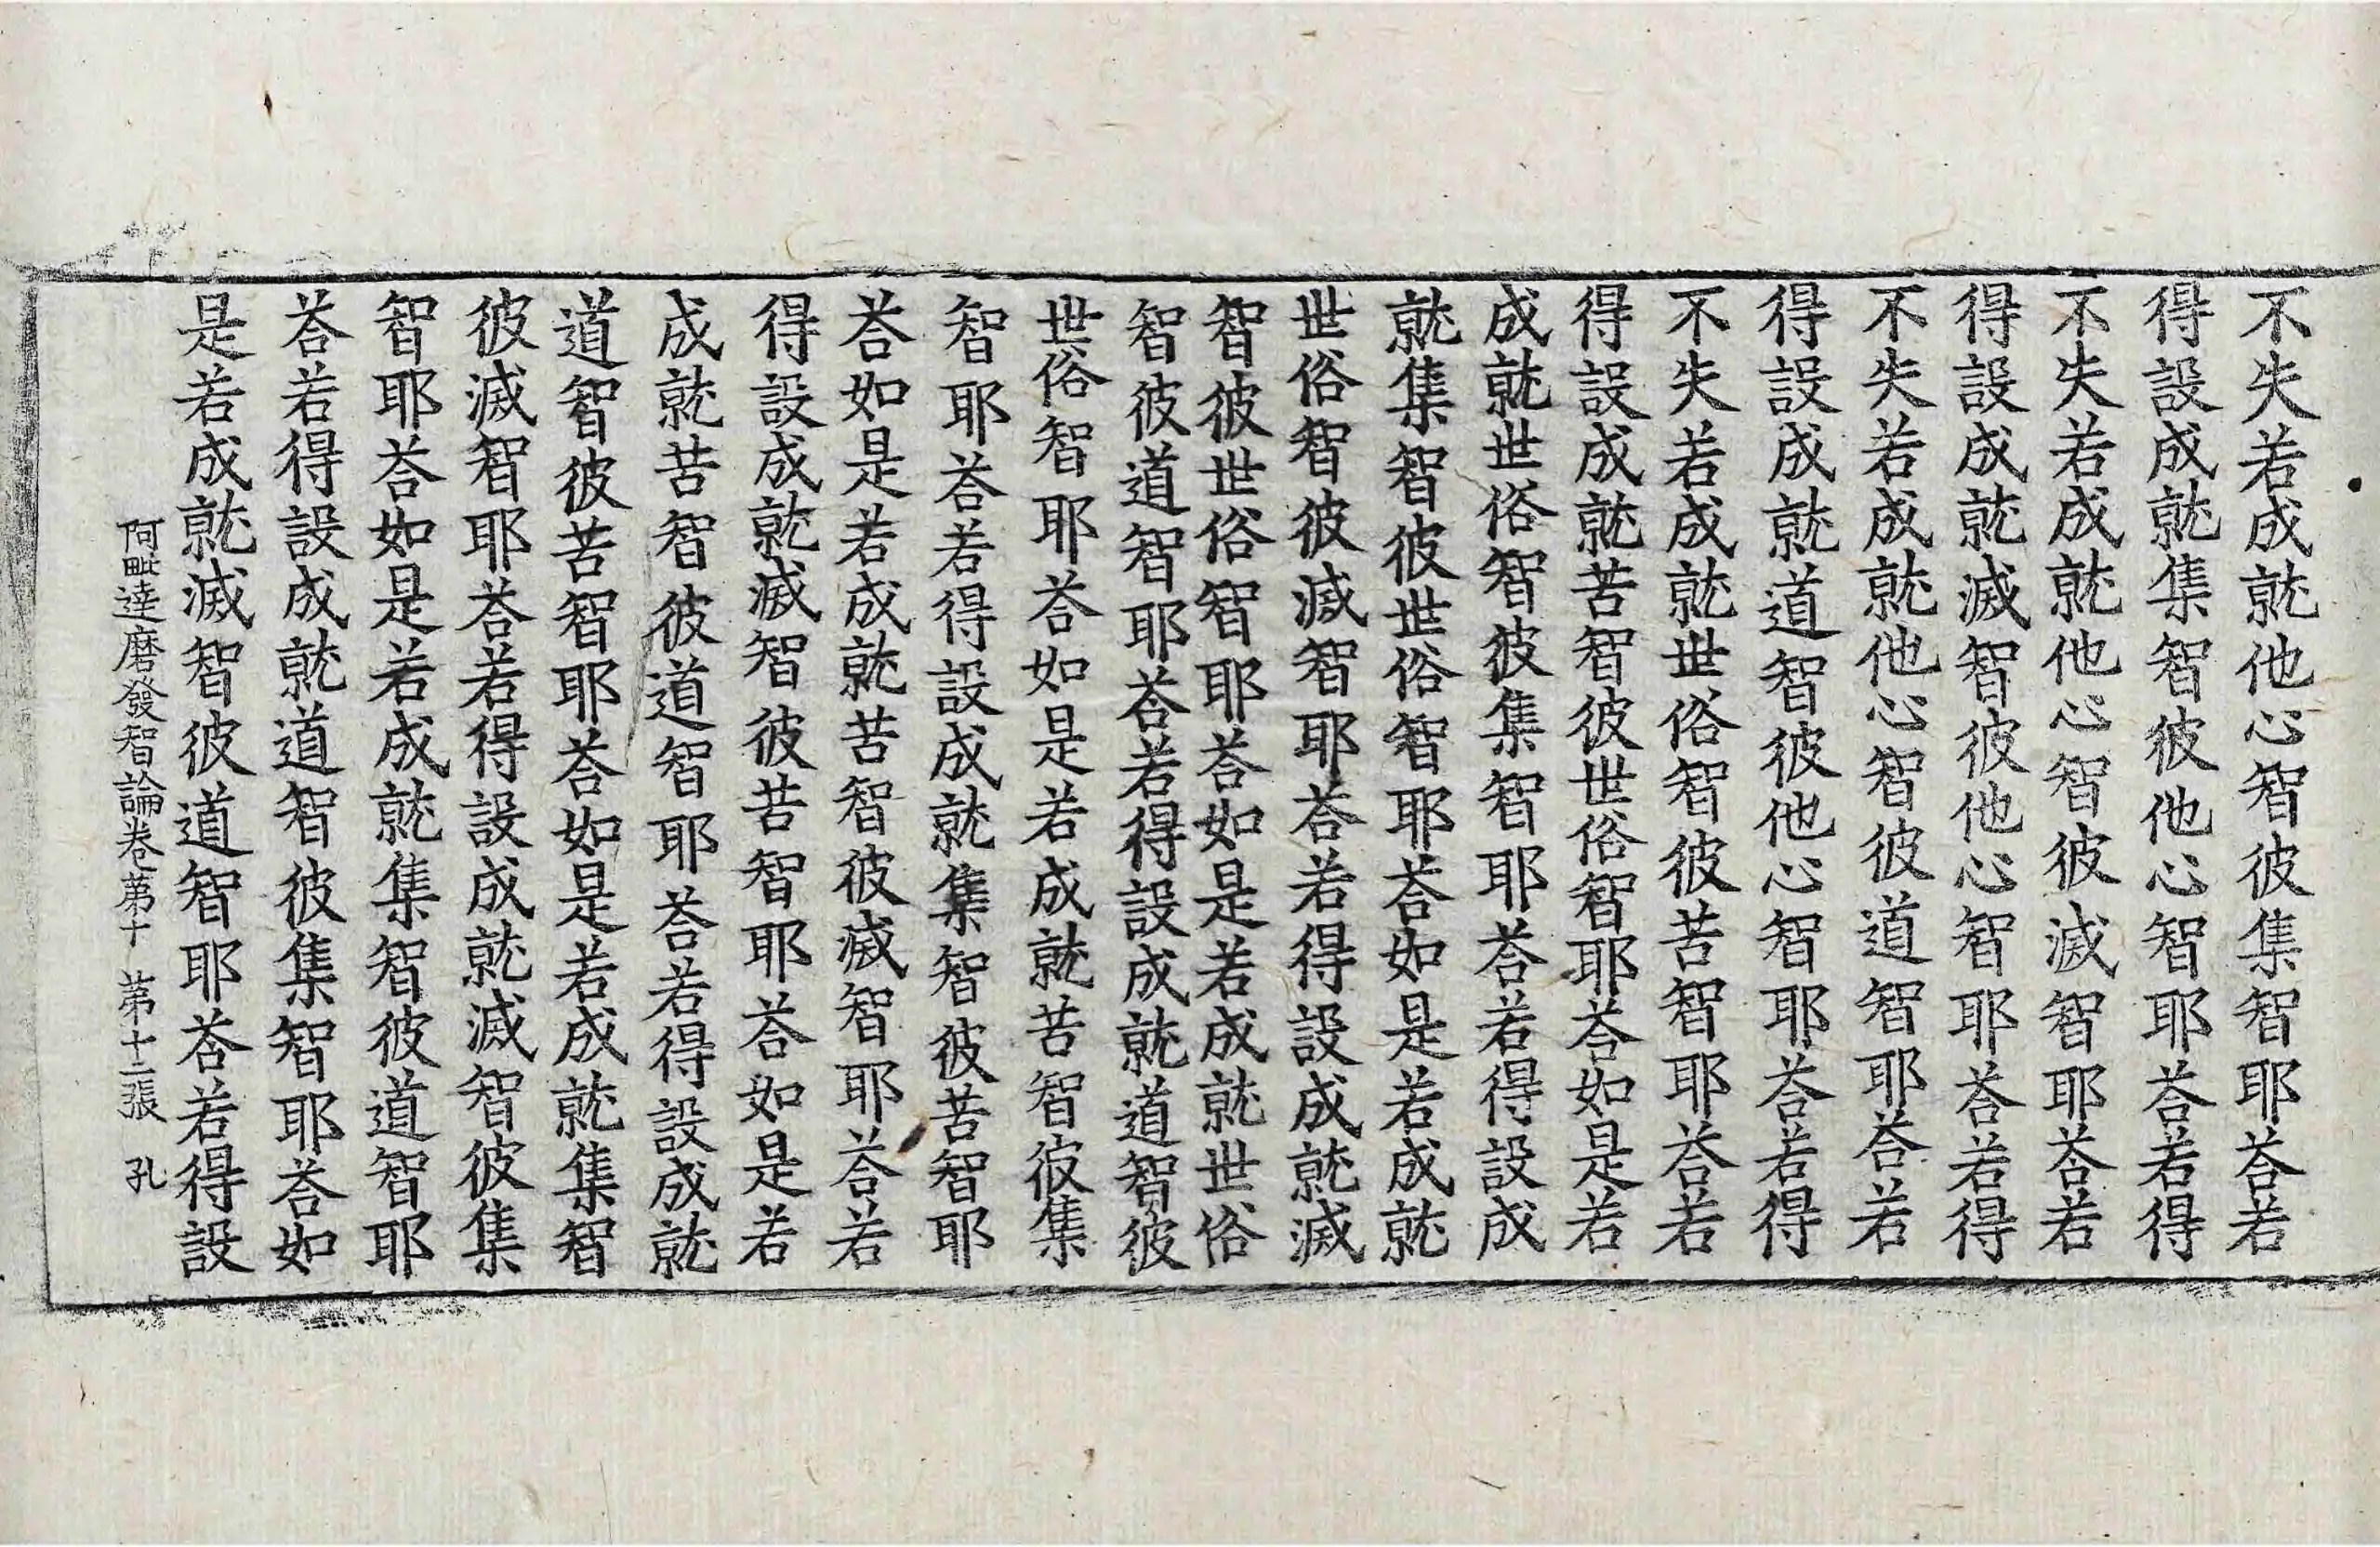 不失若成就他心智彼集智耶荅若
得設成就集智彼他心智耶荅若得
不失若成就他心智彼滅智耶荅若
得設成就滅智彼他心智耶荅若得
不失若成就他心智彼道智耶荅若
得設成就道智彼他心智耶荅若得
不失若成就世俗智彼苦智耶荅若
得設成就苦智彼世俗智耶荅如是若
成就世俗智彼集智耶荅若得設成
就集智彼世俗智耶荅如是若成就
世俗智彼滅智耶荅若得設成就滅
智彼世俗智耶荅如是若成就世俗
智彼道智耶荅若得設成就道智彼
世俗智耶荅如是若成就苦智彼集
智耶荅若得設成就集智彼苦智耶
荅如是若成就苦智彼滅智耶荅若
得設成就滅智彼苦智耶荅如是若
成就苦智彼道智耶荅若得設成就
道智彼苦智耶荅如是若成就集智
彼滅智耶荅若得設成就滅智彼集
智耶荅如是若成就集智彼道智耶
荅若得設成就道智彼集智耶荅如
是若成就滅智彼道智耶荅若得設
阿毗達磨發智論卷苐十 苐十二張 孔